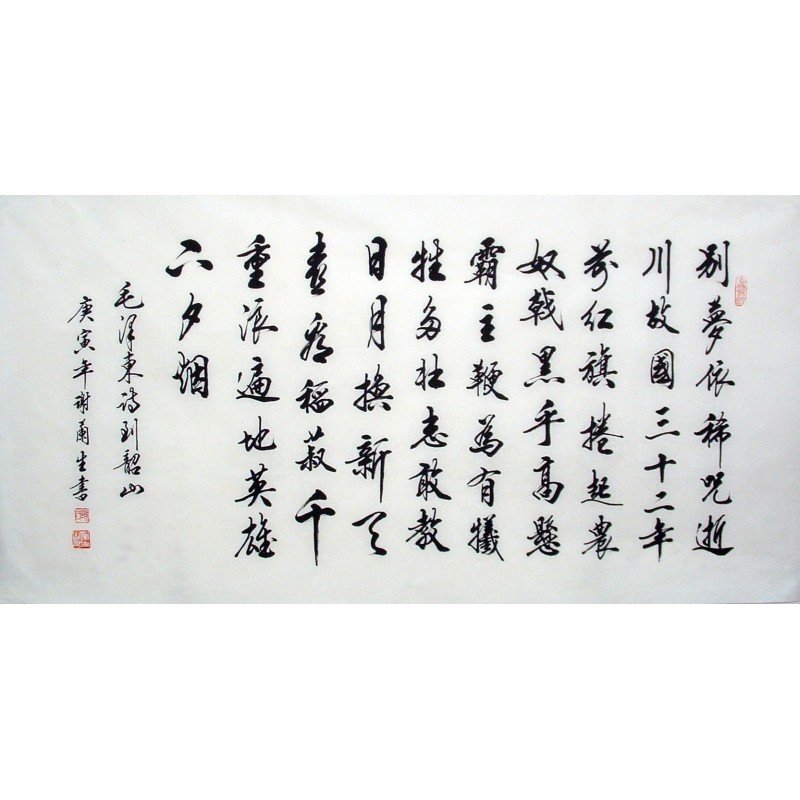 别夢依稀咒逝
川故國三十二年
前红旗捲起農
奴戟黑手高懸
霸主鞭為有犧
牲多壮志敢教
日月換新天
喜看稻菽千
重浪遍地英雄
下夕烟
毛泽東诗到韶山
庚寅年谢生書